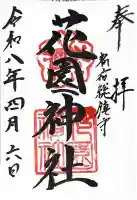 奉拝
新宿総鎮守
花園神社
令和八年四月六日